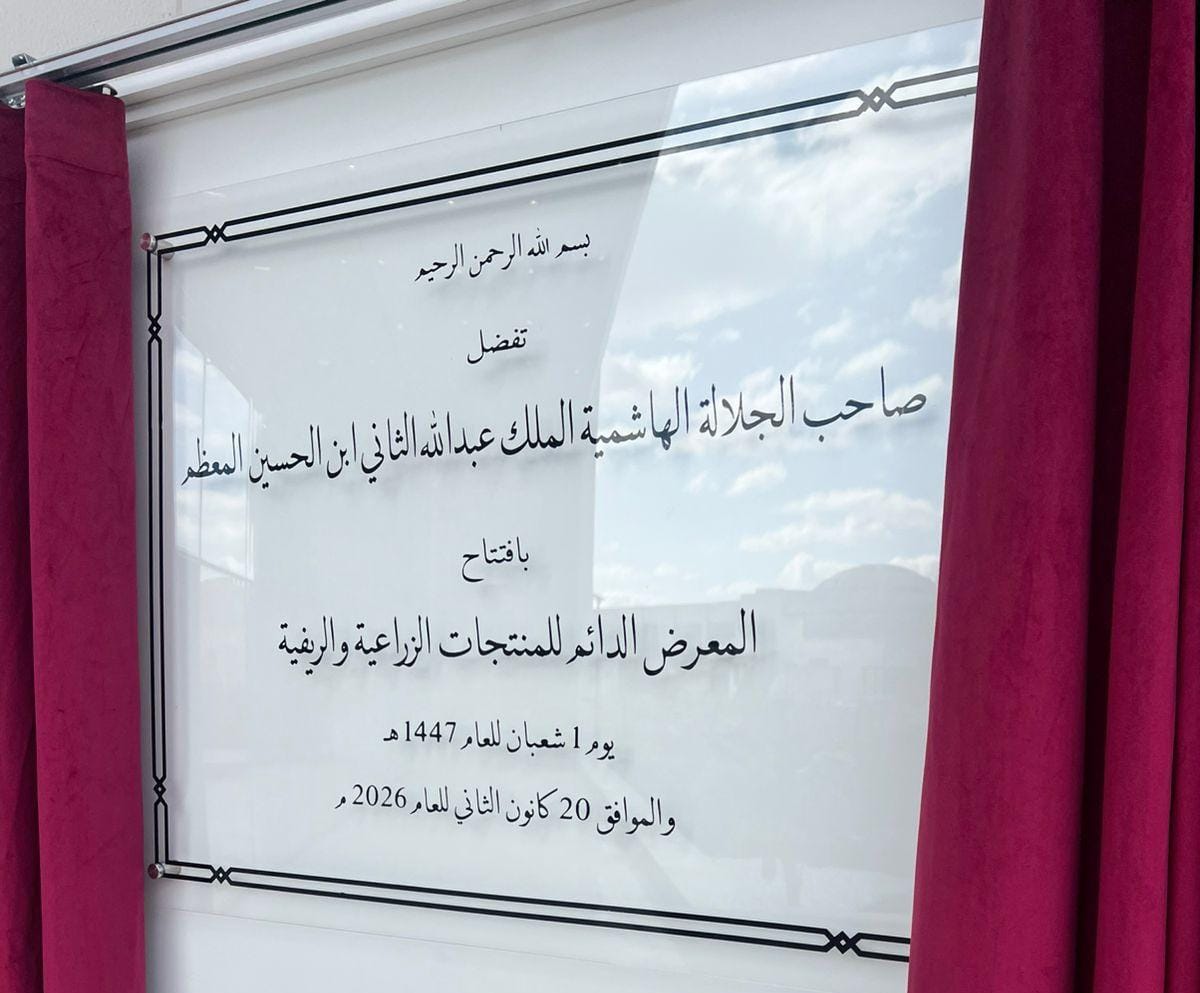 بسم الله الرحمن الرحيم
تفضل
صاحب الجلالة الهاشمية الملك عبدالله الثاني ابن الحسين المعظم
بافتتاح
المعرض الدائم للمنتجات الزراعية والريفية
يوم 1 شعبان للعام 1447هـ
والموافق 20 كانون الثاني للعام 2026 م